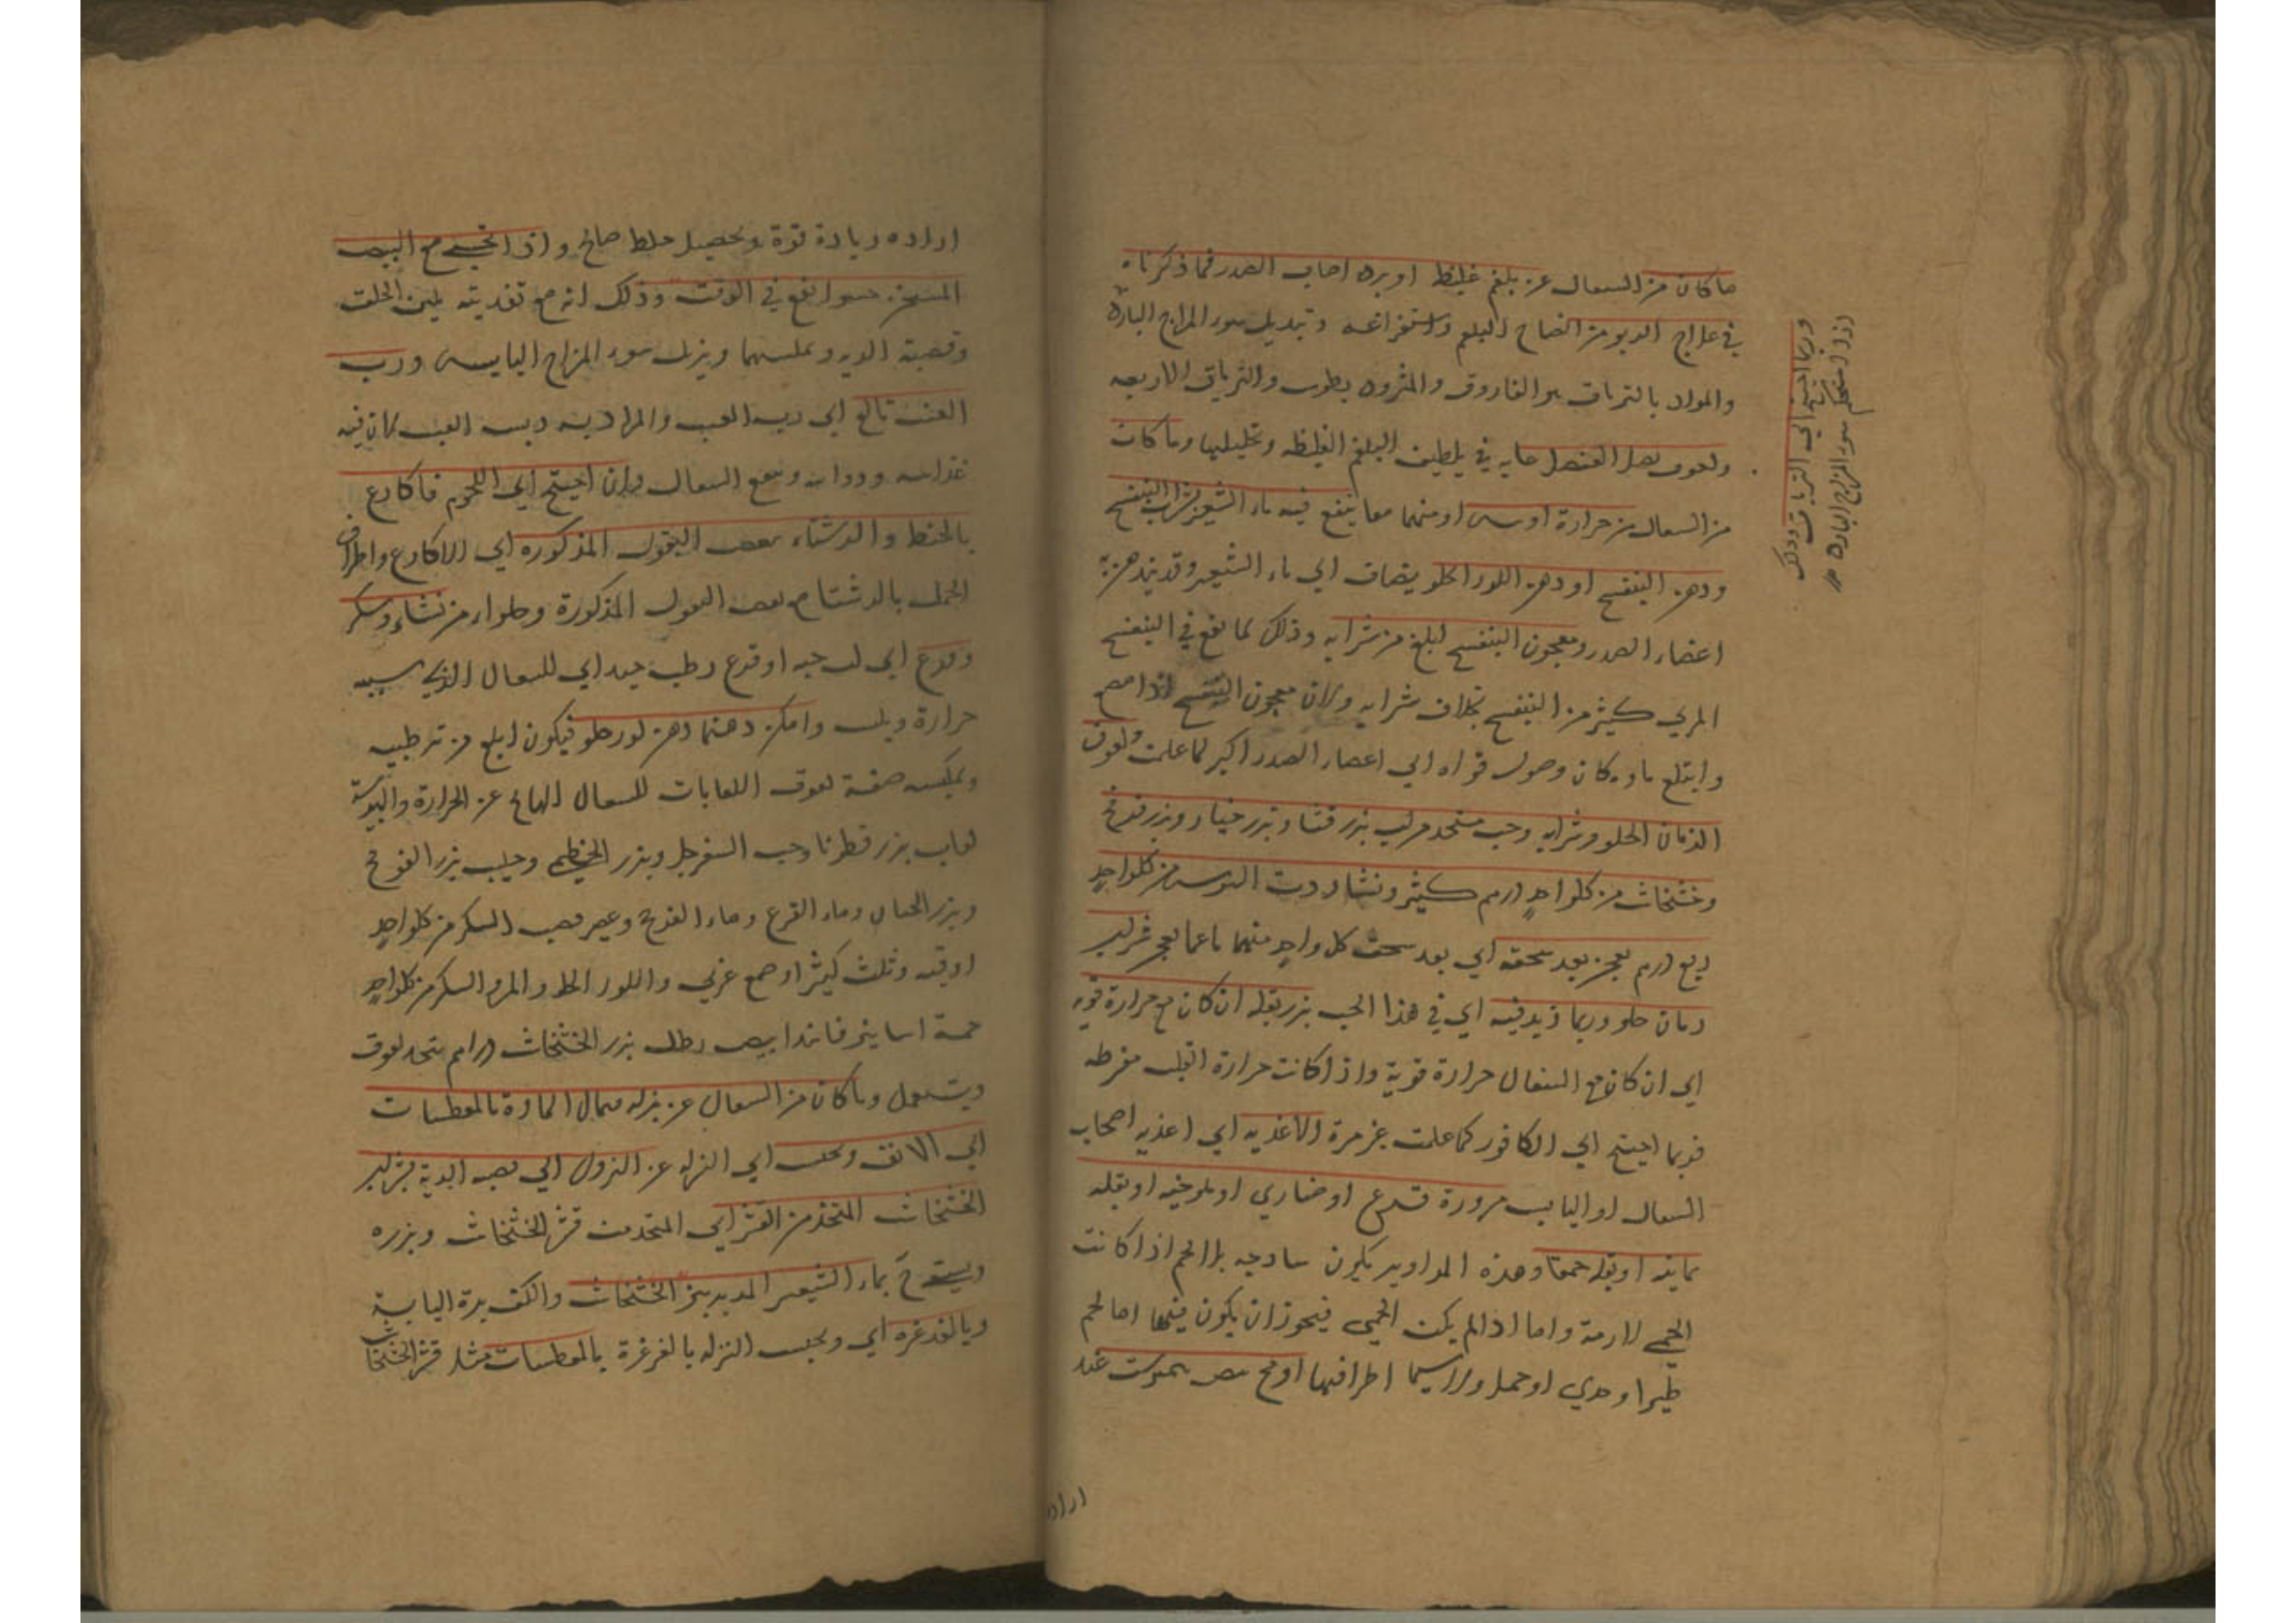 ما كان من السعال عن بلغم غليظ او برد اصاب الصدر فما ذكرناه
في علاج الربو من انضاج البلغم واستفراغه وتبديل سوء المزاج البارد
والمواد بالترياق الفاروق والمثرود يطوس والترياق الاربعه
ولعوق بصل العنصل غايه في تلطيف البلغم الغليظه وتحليلها وما كان
من السعال من حرارة او يبس او منهما معا ينفع فيه ماء الشعير بشراب البنفسج
ودهن البنفسج او دهن اللوز الحلو يضاف الي ماء الشعير وقد يدهن به
اعضاء الصدر ومعجون البنفسج ابلغ من شرابه وذلك لما يقع في البنفسج
المربي كثير من البنفسج بخلاف شرابه ولان معجون البنفسج اذا مص
وابتلع ماوه كان وصول قواه الي اعضاء الصدر اكبر لما علمت ولعوق
الرمان الحلو وشرابه وحب متخذ من لب بزر قثا وبزر خيار وبزر قرع
وخشخاش من كل واحد درهم كثيرا ونشا ورب السوس من كل واحد
ربع درهم يعجن بعد سحقه اي بعد سحق كل واحد منهما ناعما يعجن بشراب
رمان حلو وربما زيد فيه اي في هذا الحب بزر بقله ان كان مع حرارة قويه
اي ان كان مع السعال حرارة قوية واذا كانت حرارة القلب مفرطه
فربما احتيج الي الكافور كما علمت غير مرة الاغذيه اي اغذيه اصحاب
السعال او اليابس مزورة قرع او خباري او ملوخيه او بقله
يمانيه او بقله حمقا وهذه المزاوير يكون ساذجه بلا لحم اذا كانت
الحمي لازمة واما اذا لم يكن الحمي فيجوز ان يكون فيها اما لحم
طير او جدي او حمل ولا سيما اطرافها او مح بيض نيمرشت عند
وربما احتيج الي الترياق وذلك
اذا استحكم سوء المزاج البارد
اراده
اراده زيادة قوة وتحصيل خلط صالح واذا تحسي مع البيض
المسخن حسوا نفع في الوقت وذلك انه مع تغذيته يلين الحلق
وقصبة الريه ويملسهما ويزيل سوء المزاج اليابس ورب
العنب نافع اي رب العنب والمراد به دبس العنب كان فيه
غذائيه ودوائيه وينفع السعال وان احتيج الي اللحوم فاكارع
بالحنطه والرشتاء ببعض البقول المذكوره اي الاكارع واطراف
الحمل بالرشتا مع بعض البقول المذكورة وحلواء من نشاء وسكر
وقرع اي لب حبه او قرع رطب جيد اي للسعال الذي سببه
حرارة ويبس وامكن دهنها دهن لوز حلو فيكون ابلغ من ترطيبه
ويمليسه صفة لعوق اللعابات للسعال الهايج عن الحرارة واليبوسة
لعاب بزر قطونا وحب السفرجل وبزر الخطمي وحليب بزر القرع
وبزر الخيار وماء القرع وماء الفرفخ وعصير قصب السكر من كل واحد
اوقيه وثلث كثيرا وصمغ عربي واللوز الحلو والمر والسكر من كل واحد
خمسة اساتير فانيذ ابيض رطل بزر الخشخاش دراهم يتخذ لعوق
ويستعمل وما كان من السعال عن نزله فيمال المادة بالمعطسات
الي الانف وتحبس اي النزله عن النزول الي قصبه الرية بشراب
الخشخاش المتخذ من القشر اي المتخذ من قشر الخشخاش وبزره
ويستفرغ بماء الشعير المدبر ببزر الخشخاش والكزبرة اليابسة
وبالغرغره اي ويحبس النزله بالغرغرة بالمعطسات مثل قشر الخشخاش